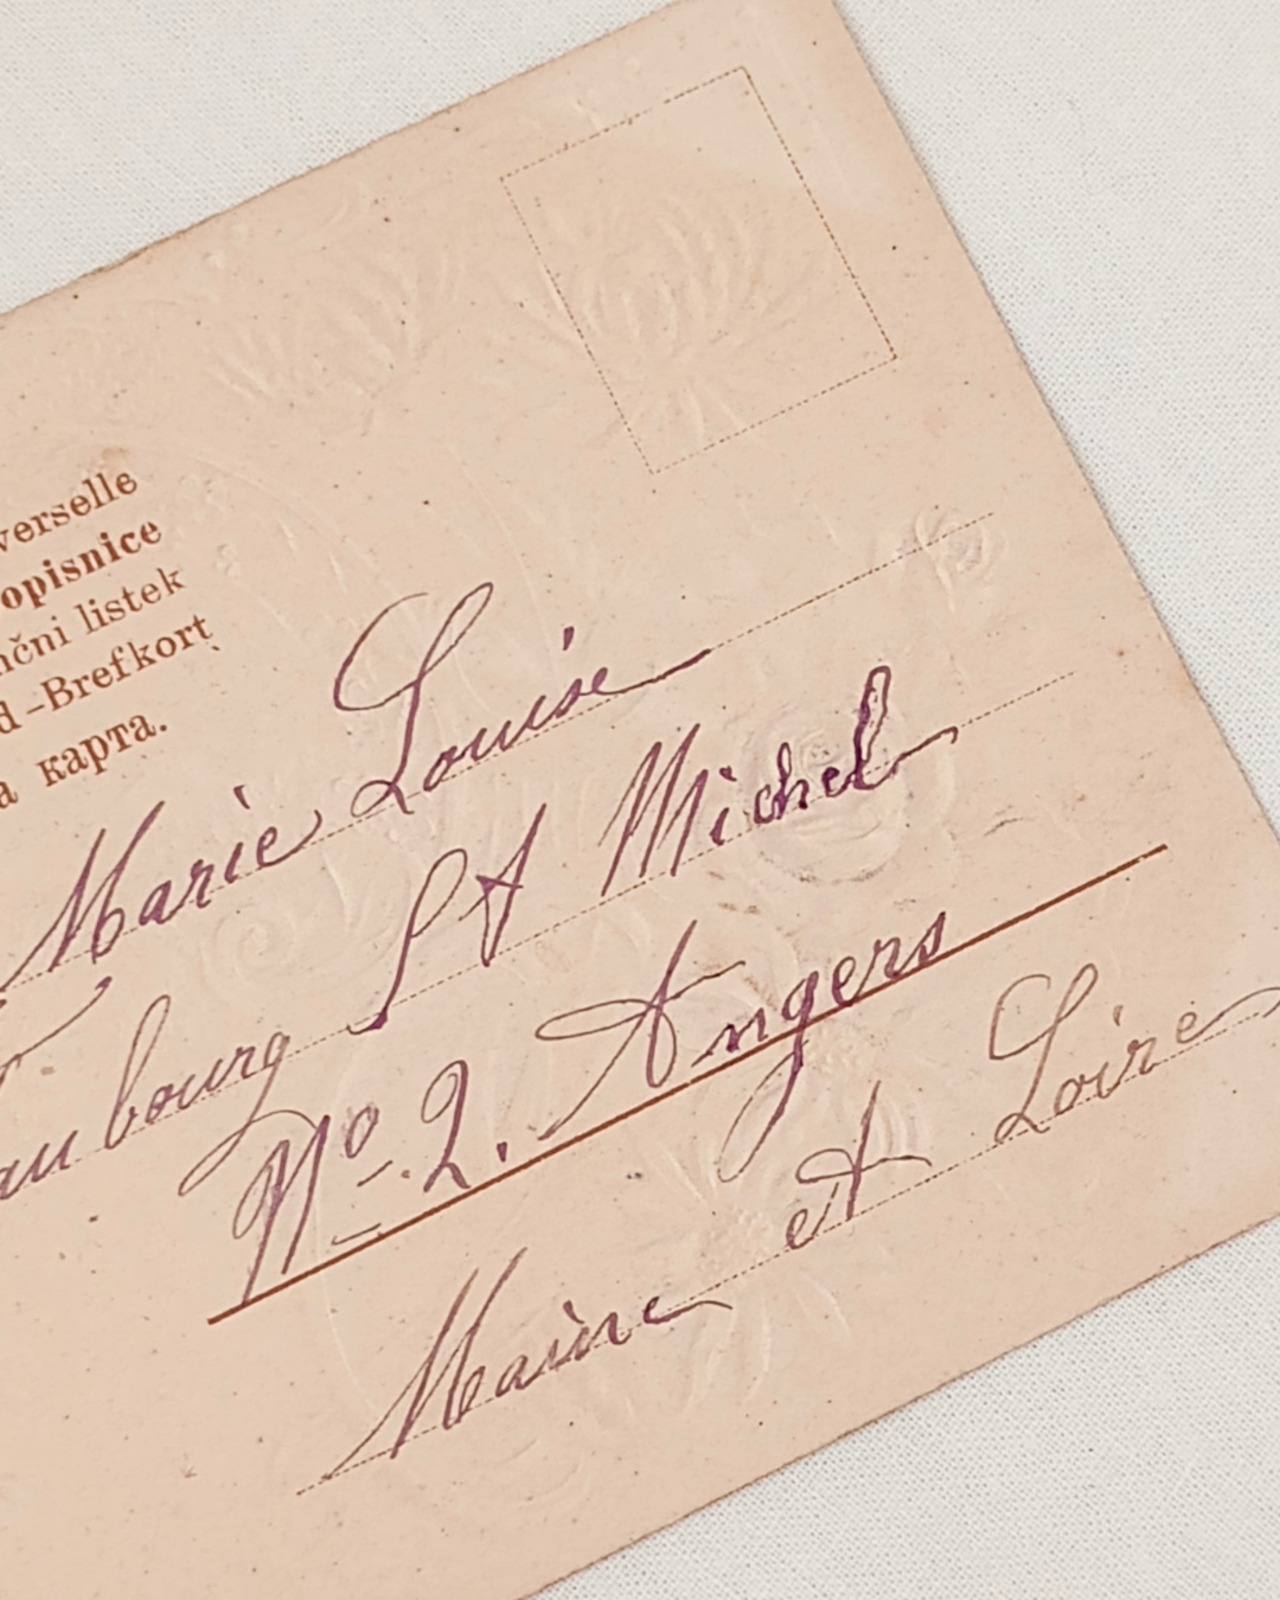 verselle
opisnice
nčni listek
d-Brefkort
a карта.
Marie Louise
aubourg St Michel
No 2. Angers
Maine et Loire